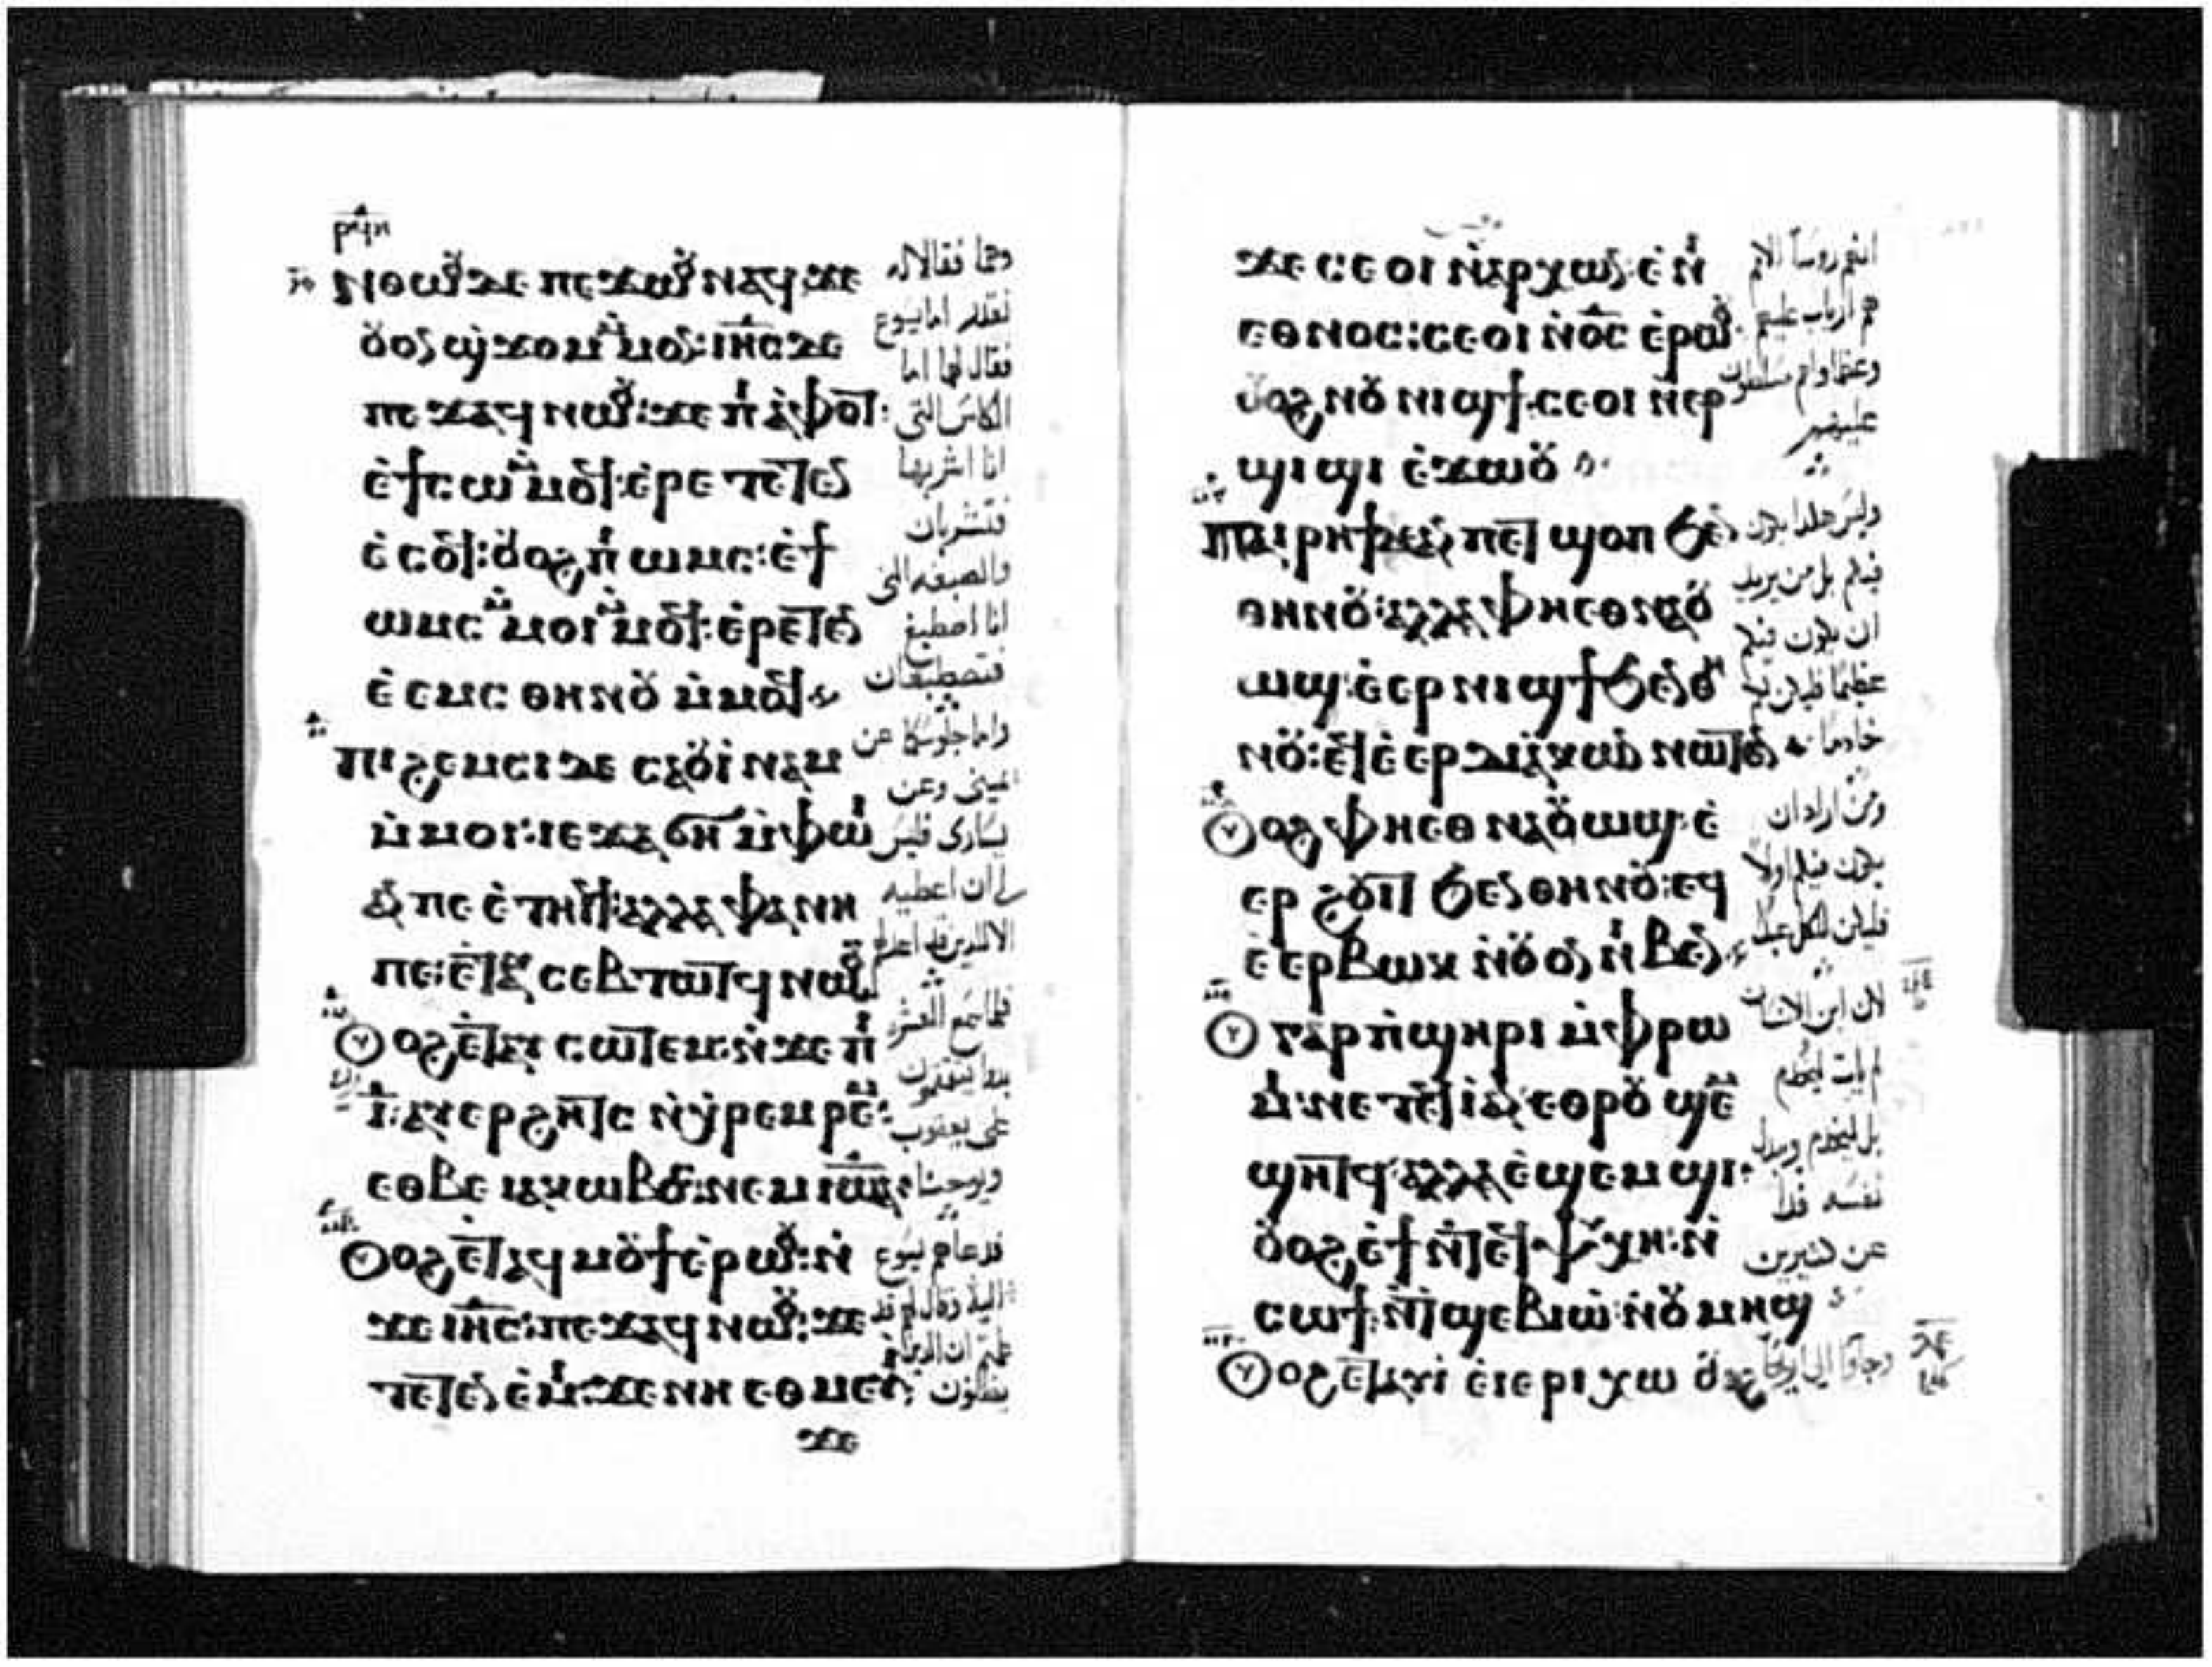 ⲣϥⲏ
ⲛⲑⲱⲟⲩ ⲇⲉ ⲡⲉϫⲱⲟⲩ ⲛⲁϥ ϫⲉ
ⲟⲩⲟⲛ ϣϫⲟⲙ ⲙⲙⲟⲛ: ⲓⲏⲥ ⲇⲉ
ⲡⲉϫⲁϥ ⲛⲱⲟⲩ: ϫⲉ ⲡⲓⲁⲫⲟⲧ:
ⲉϯⲥⲱ ⲙⲙⲟϥ: ⲉⲣⲉⲧⲉⲧⲉⲛ
ⲉⲥⲟϥ: ⲟⲩⲟϩ ⲡⲓⲱⲙⲥ: ⲉϯ
ⲱⲙⲥ ⲙⲙⲟⲓ ⲙⲙⲟϥ: ⲉⲣⲉⲧⲉⲧⲉⲛ
ⲉⲉⲙⲥ ⲑⲏⲛⲟⲩ ⲙⲙⲟϥ
ⲡⲓϩⲉⲙⲥⲓ ⲇⲉ ⲥⲁⲟⲩⲓⲛⲁⲙ
ⲙⲙⲟⲓ: ⲓⲉ ϫⲁϭⲏ ⲙⲫⲱⲓ
ⲁⲛ ⲡⲉ ⲉⲧⲏⲓϥ: ⲁⲗⲗⲁ ⲫⲁⲛⲏ
ⲡⲉ: ⲉⲧⲁⲩⲥⲉⲃⲧⲱⲧϥ ⲛⲱⲟⲩ
ⲟⲩⲟϩ ⲉⲧⲁⲩⲥⲱⲧⲉⲙ: ⲛϫⲉ ⲡⲓ
ⲓ: ⲁⲩⲉⲣϩⲏⲧⲥ ⲛⲭⲣⲉⲙⲣⲉⲙ:
ⲉⲑⲃⲉ ⲓⲁⲕⲱⲃⲟⲥ: ⲛⲉⲙ ⲓⲱⲁ:
ⲟⲩⲟϩ ⲉⲧⲁϥⲙⲟⲩϯ ⲉⲣⲱⲟⲩ: ⲛ
ϫⲉ ⲓⲏⲥ: ⲡⲉϫⲁϥ ⲛⲱⲟⲩ: ϫⲉ
ⲧⲉⲧⲉⲛⲉⲙⲓ: ϫⲉ ⲛⲏ ⲉⲑⲙⲉⲩⲓ:
ϫⲉ
وهما فقالا له
نقدر اما يسوع
فقال لهما اما
الكاس التي
انا اشربها
فتشربان
والصبغه التي
انا اصطبغ
فتصطبغان
واما جلوسكما عن
يميني وعن
يساري فليس
لي ان اعطيه
الا للذين قد اعد لهم
فلما سمع العشرة
بدوا يتقمقمون
على يعقوب
ويوحنا
فدعاهم يسوع
اليه وقال لهم قد
علمتم ان الذين
يظنون
ϫⲉ ⲥⲉⲟⲓ ⲛⲁⲣⲭⲱⲛ ⲉⲛⲓ
ⲉⲑⲛⲟⲥ: ⲥⲉⲟⲓ ⲛⲟⲥ ⲉⲣⲱⲟⲩ:
ⲟⲩⲟϩ ⲛⲟⲩⲛⲓϣϯ: ⲥⲉⲟⲓ ⲛⲉⲣ
ϣⲓϣⲓ ⲉϫⲱⲟⲩ
ⲡⲁⲓⲣⲏϯ ⲇⲉ ⲁⲛ ⲡⲉⲧϣⲟⲡ ϧⲉⲛ
ⲑⲏⲛⲟⲩ: ⲁⲗⲗⲁ ⲫⲏⲉⲑⲛⲁⲟⲩ
ⲱϣ: ⲉⲉⲣⲛⲓϣϯ ϧⲉⲛⲑⲏ
ⲛⲟⲩ: ⲉϥⲉⲉⲣⲇⲓⲁⲕⲱⲛ ⲛⲱⲧⲉⲛ
ⲟⲩⲟϩ ⲫⲏⲉⲑⲛⲁⲟⲩⲱϣ: ⲉ
ⲉⲣϩⲟⲩⲓⲧ ϧⲉⲛ ⲑⲏⲛⲟⲩ: ⲉϥ
ⲉⲉⲣⲃⲱⲕ ⲛⲟⲩⲟⲛ ⲛⲓⲃⲉⲛ
ⲟⲩ ⲅⲁⲣ ⲡϣⲏⲣⲓ ⲙⲫⲣⲱ
ⲙⲓ: ⲛⲉⲧⲉϥⲓ ⲁⲛ: ⲉⲑⲣⲟⲩϣⲉⲙ
ϣⲏⲧϥ: ⲁⲗⲗⲁ ⲉϣⲉⲙϣⲓ:
ⲟⲩⲟϩ ⲉϯ ⲛⲧⲉϥⲯⲩⲭⲏ: ⲛ
ⲥⲱϯ: ⲛⲧϣⲉⲃⲓⲱ: ⲛⲟⲩⲙⲏϣ
ⲟⲩⲟϩ ⲉⲧⲁⲩⲓ ⲉⲓⲉⲣⲓⲭⲱ
انهم روسا الامم
هم ارباب عليهم
وعظماوهم مسلطون
عليهم
وليس هكذا يكون
فيكم بل من يريد
ان يكون فيكم
عظيما فليكن لكم
خادما
ومن اراد ان
يكون فيكم اولا
فليكن للكل عبدا
لان ابن الانسان
لم يات ليخدم
بل ليخدم ويبدل
نفسه فدا
عن كثيرين
وجاوا الي اريحا